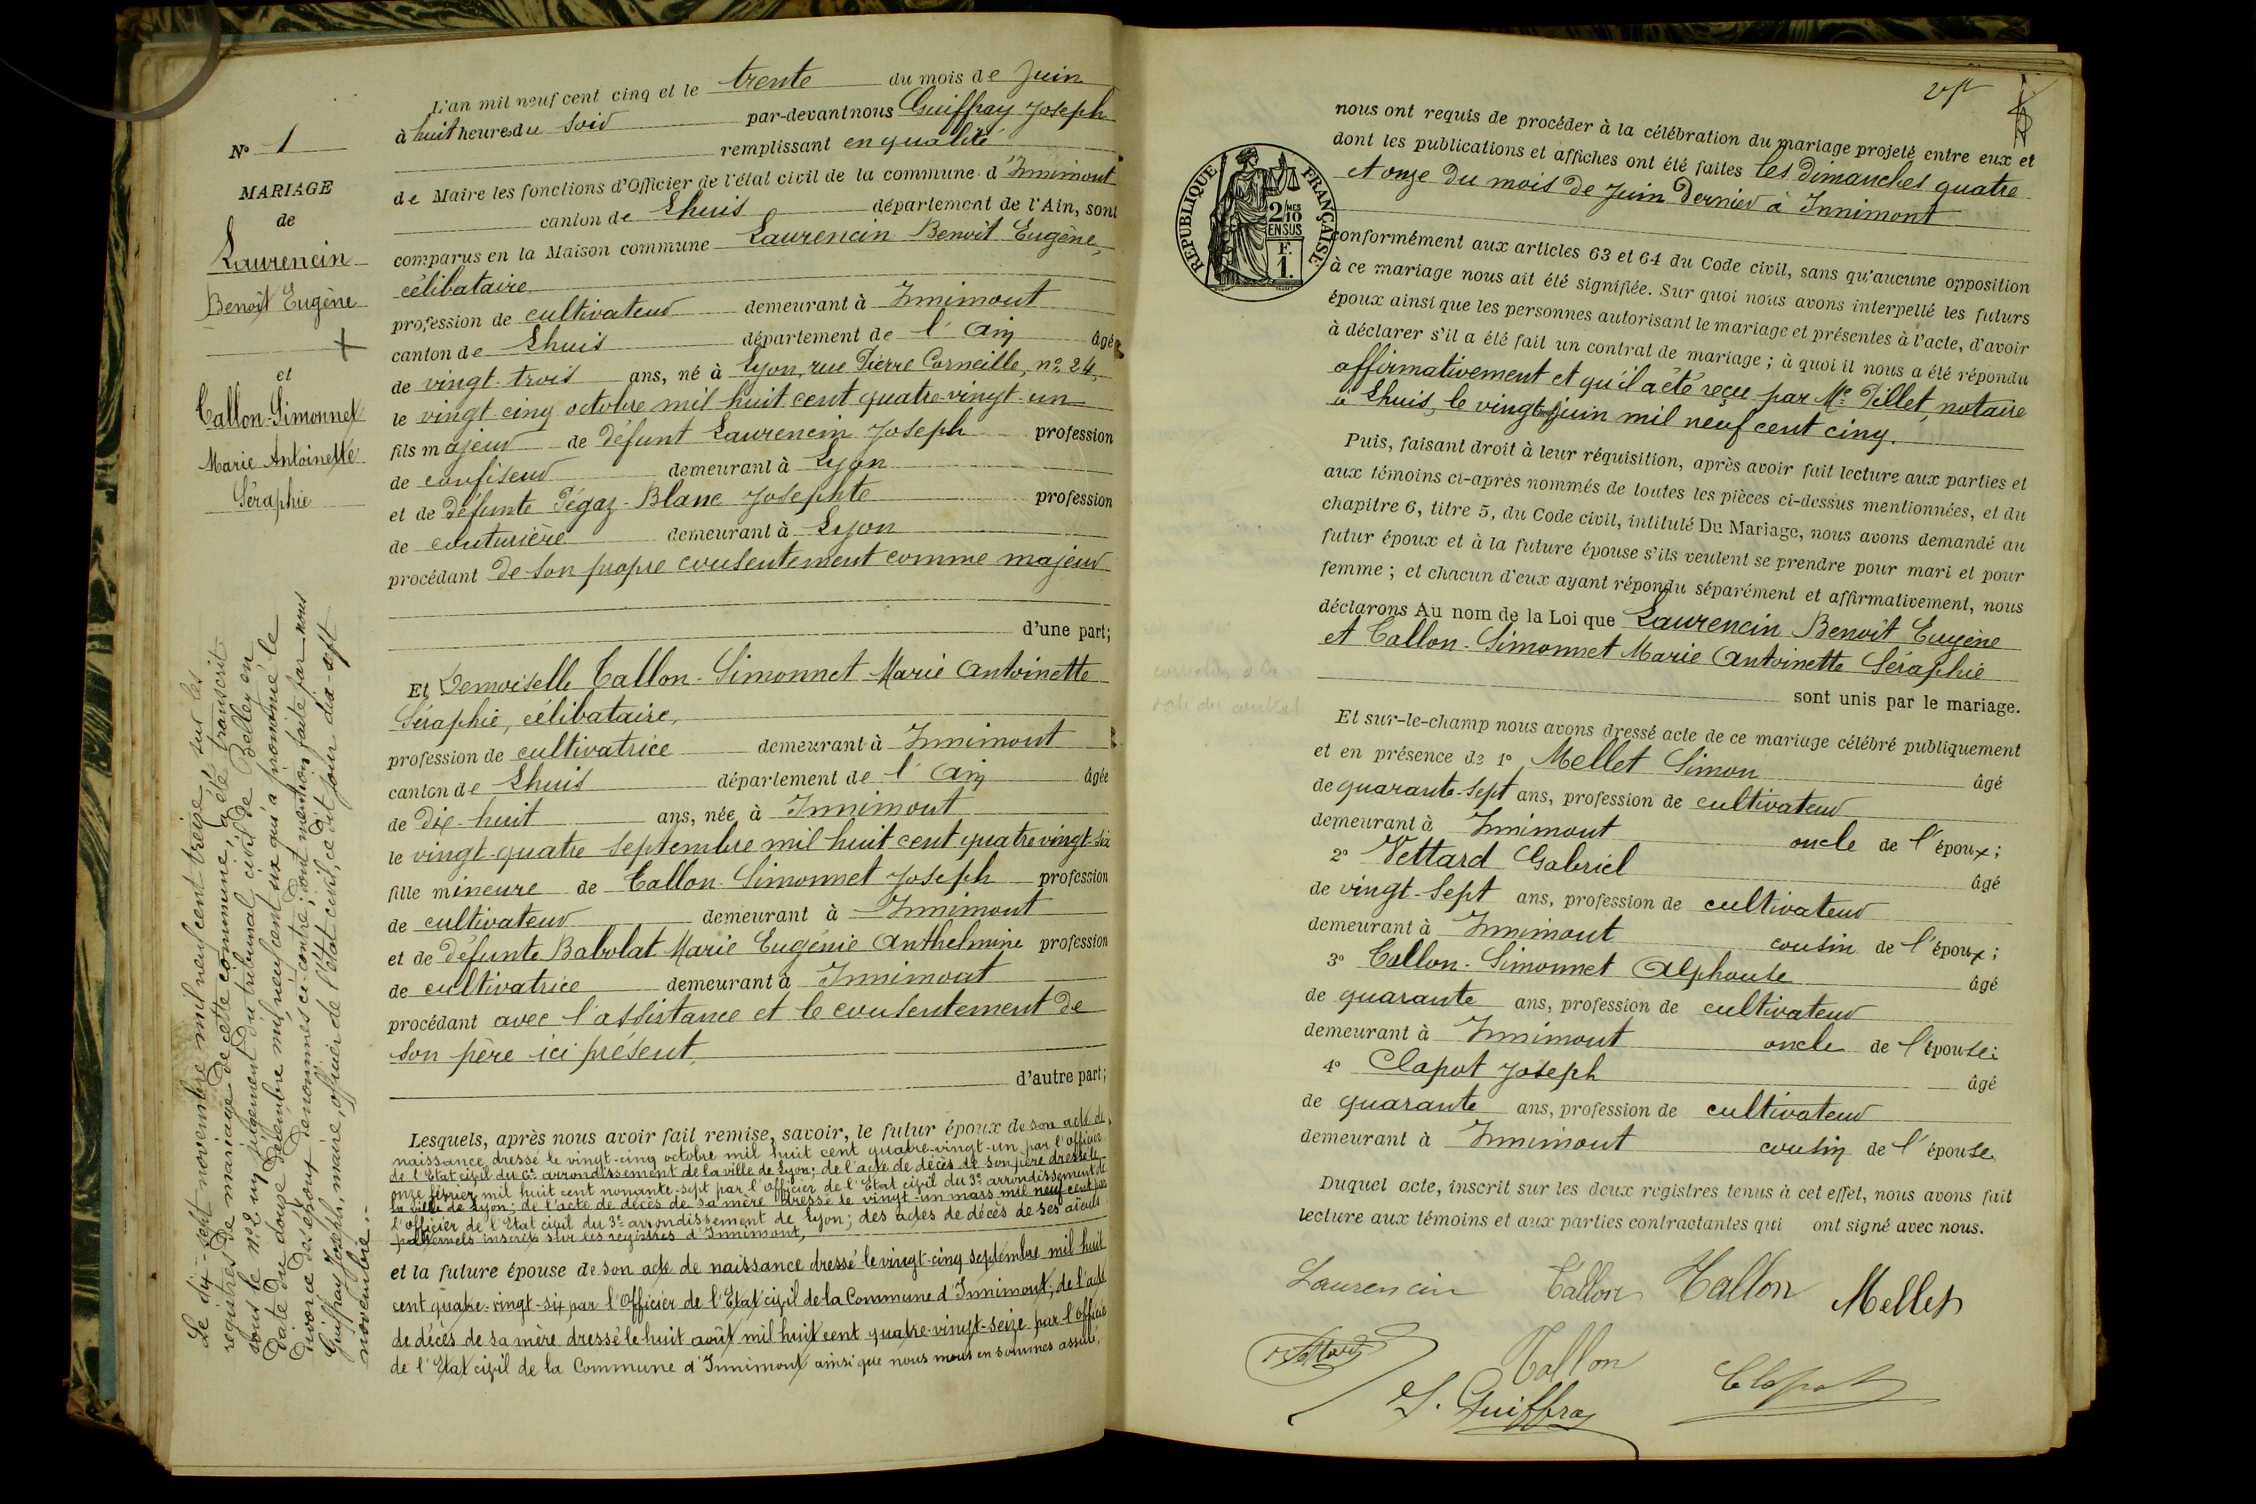 N° 1
MARIAGE
de
Laurencin
Benoît Eugène
et
Callon-Simonnet
Marie Antoinette
Séraphie
Le dix-sept novembre mil neuf cent treize, sur les
registres de mariage de cette commune, a été transcrit
sous le n° 2 un jugement du tribunal civil de Belley en
date du douze décembre mil neuf cent six qui a prononcé le
divorce des époux dénommés ci-contre; dont mention faite par nous
Guiffray Joseph, maire, officier de l'état civil, ce dit jour dix-sept
novembre.-
L'an mil neuf cent cinq et le trente du mois de Juin
à huit heures du soir par-devant nous Guiffray Joseph
remplissant en qualité
de Maire les fonctions d'Officier de l'état civil de la commune d'Innimont
canton de Lhuis département de l'Ain, sont
comparus en la Maison commune Laurencin Benoît Eugène,
célibataire
profession de cultivateur demeurant à Innimont
canton de Lhuis département de l'Ain âgé
de vingt-trois ans, né à Lyon, rue Pierre Corneille, n° 24,
le vingt-cinq octobre mil huit cent quatre-vingt-un
fils majeur de défunt Laurencin Joseph profession
de confiseur demeurant à Lyon
et de défunte Pégaz-Blanc Josephte profession
de couturière demeurant à Lyon
procédant de son propre consentement comme majeur
d'une part;
Et Demoiselle Callon-Simonnet Marie Antoinette
Séraphie, célibataire,
profession de cultivatrice demeurant à Innimont
canton de Lhuis département de l'Ain âgée
de dix-huit ans, née à Innimont
le vingt-quatre septembre mil huit cent quatre vingt-six
fille mineure de Callon-Simonnet Joseph profession
de cultivateur demeurant à Innimont
et de défunte Babolat Marie Eugénie Anthelmine profession
de cultivatrice demeurant à Innimont
procédant avec l'assistance et le consentement de
son père ici présent,
d'autre part;
Lesquels, après nous avoir fait remise, savoir, le futur époux de son acte de
naissance dressé le vingt-cinq octobre mil huit cent quatre-vingt-un par l'officier
de l'Etat civil du 6e arrondissement de la ville de Lyon; de l'acte de décès de son père dressé le
onze février mil huit cent nonante-sept par l'Officier de l'Etat civil du 3e arrondissement de
la ville de Lyon; de l'acte de décès de sa mère dressé le vingt-un mars mil neuf cent par
l'Officier de l'Etat civil du 3e arrondissement de Lyon; des actes de décès de ses aïeuls
paternels inscrits sur les registres d'Innimont,
et la future épouse de son acte de naissance dressé le vingt-cinq septembre mil huit
cent quatre-vingt-six par l'Officier de l'Etat civil de la Commune d'Innimont, de l'acte
de décès de sa mère dressé le huit août mil huit cent quatre-vingt-seize par l'Officier
de l'Etat civil de la Commune d'Innimont ainsi que nous nous en sommes assuré,
REPUBLIQUE FRANÇAISE
2/10 MES
EN SUS
F.
1.
nous ont requis de procéder à la célébration du mariage projeté entre eux et
dont les publications et affiches ont été faites les dimanches quatre
et onze du mois de Juin dernier à Innimont
conformément aux articles 63 et 64 du Code civil, sans qu'aucune opposition
à ce mariage nous ait été signifiée. Sur quoi nous avons interpellé les futurs
époux ainsi que les personnes autorisant le mariage et présentes à l'acte, d'avoir
à déclarer s'il a été fait un contrat de mariage; à quoi il nous a été répondu
affirmativement et qu'il a été reçu par Me Pillet, notaire
à Lhuis, le vingt juin mil neuf cent cinq.
Puis, faisant droit à leur réquisition, après avoir fait lecture aux parties et
aux témoins ci-après nommés de toutes les pièces ci-dessus mentionnées, et du
chapitre 6, titre 5, du Code civil, intitulé Du Mariage, nous avons demandé au
futur époux et à la future épouse s'ils veulent se prendre pour mari et pour
femme; et chacun d'eux ayant répondu séparément et affirmativement, nous
déclarons Au nom de la Loi que Laurencin Benoît Eugène
et Callon-Simonnet Marie Antoinette Séraphie
sont unis par le mariage.
Et sur-le-champ nous avons dressé acte de ce mariage célébré publiquement
et en présence de 1° Mellet Simon âgé
de quarante-sept ans, profession de cultivateur
demeurant à Innimont oncle de l'époux;
2° Vettard Gabriel âgé
de vingt-sept ans, profession de cultivateur
demeurant à Innimont cousin de l'époux;
3° Callon-Simonnet Alphonse âgé
de quarante ans, profession de cultivateur
demeurant à Innimont oncle de l'épouse;
4° Clapot Joseph âgé
de quarante ans, profession de cultivateur
demeurant à Innimont cousin de l'épouse
Duquel acte, inscrit sur les deux registres tenus à cet effet, nous avons fait
lecture aux témoins et aux parties contractantes qui ont signé avec nous.
Laurencin Callon Callon Mellet
Vettard Callon Clapot
J. Guiffray